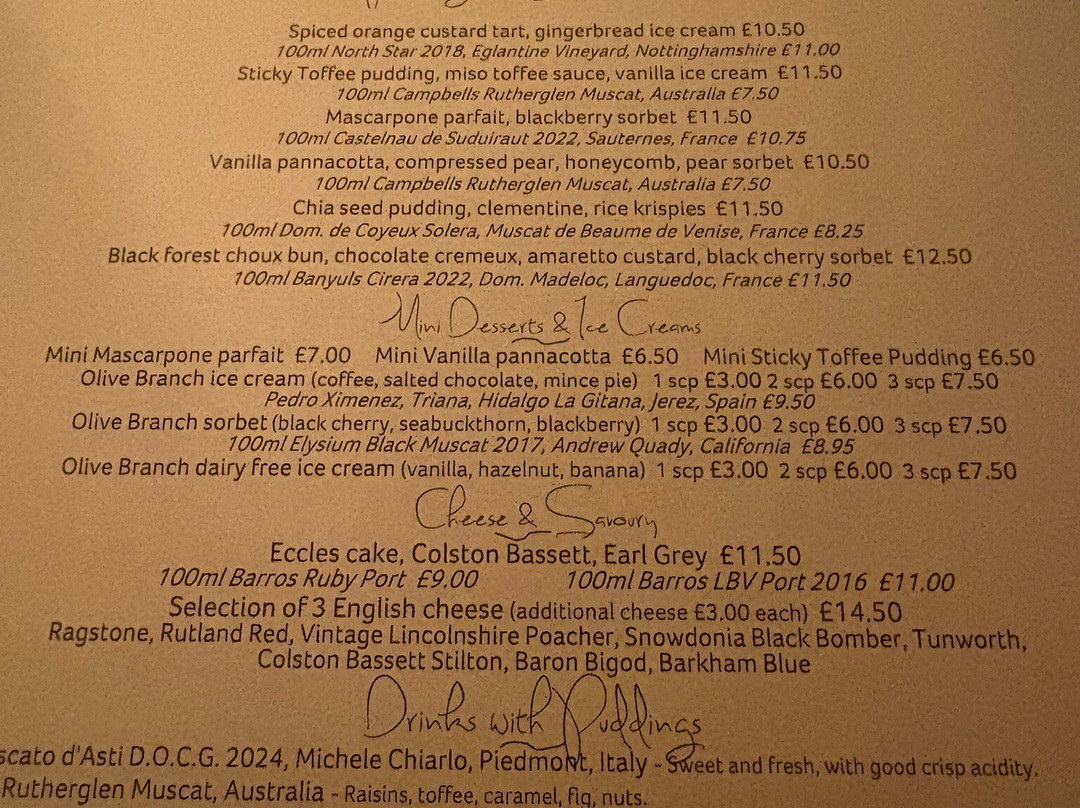 Spiced orange custard tart, gingerbread ice cream £10.50
100ml North Star 2018, Eglantine Vineyard, Nottinghamshire £11.00
Sticky Toffee pudding, miso toffee sauce, vanilla ice cream £11.50
100ml Campbells Rutherglen Muscat, Australia £7.50
Mascarpone parfait, blackberry sorbet £11.50
100ml Castelnau de Suduiraut 2022, Sauternes, France £10.75
Vanilla pannacotta, compressed pear, honeycomb, pear sorbet £10.50
100ml Campbells Rutherglen Muscat, Australia £7.50
Chia seed pudding, clementine, rice krispies £11.50
100ml Dom. de Coyeux Solera, Muscat de Beaume de Venise, France £8.25
Black forest choux bun, chocolate cremeux, amaretto custard, black cherry sorbet £12.50
100ml Banyuls Cirera 2022, Dom. Madeloc, Languedoc, France £11.50
Mini Desserts & Ice Creams
Mini Mascarpone parfait £7.00 Mini Vanilla pannacotta £6.50 Mini Sticky Toffee Pudding £6.50
Olive Branch ice cream (coffee, salted chocolate, mince pie) 1 scp £3.00 2 scp £6.00 3 scp £7.50
Pedro Ximenez, Triana, Hidalgo La Gitana, Jerez, Spain £9.50
Olive Branch sorbet (black cherry, seabuckthorn, blackberry) 1 scp £3.00 2 scp £6.00 3 scp £7.50
100ml Elysium Black Muscat 2017, Andrew Quady, California £8.95
Olive Branch dairy free ice cream (vanilla, hazelnut, banana) 1 scp £3.00 2 scp £6.00 3 scp £7.50
Cheese & Savoury
Eccles cake, Colston Bassett, Earl Grey £11.50
100ml Barros Ruby Port £9.00 100ml Barros LBV Port 2016 £11.00
Selection of 3 English cheese (additional cheese £3.00 each) £14.50
Ragstone, Rutland Red, Vintage Lincolnshire Poacher, Snowdonia Black Bomber, Tunworth,
Colston Bassett Stilton, Baron Bigod, Barkham Blue
Drinks with Puddings
scato d'Asti D.O.C.G. 2024, Michele Chiarlo, Piedmont, Italy - Sweet and fresh, with good crisp acidity.
Rutherglen Muscat, Australia - Raisins, toffee, caramel, fig, nuts.